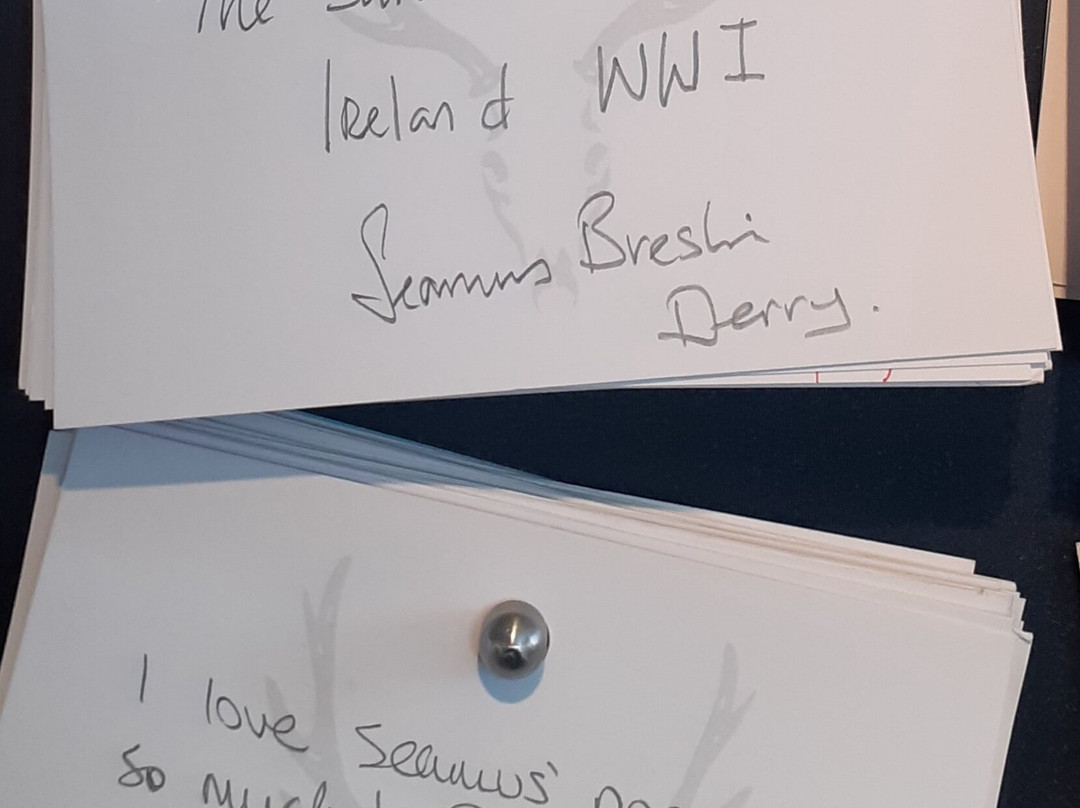 The
Ireland WWI
Seamus Breslin
Derry.
I love Seamus'
so much